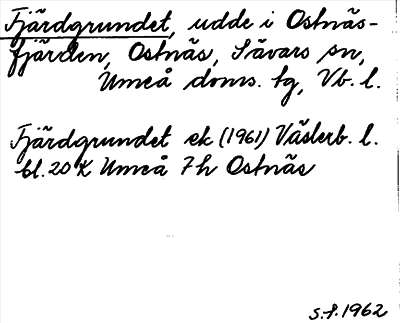 Fjärdgrundet, udde i Ostnäs-
fjärden, Ostnäs, Sävars sn,
Umeå doms. tg, Vb. l.
Fjärdgrundet ek (1961) Västerb. l.
bl. 20 K Umeå 7h Ostnäs
s.f. 1962